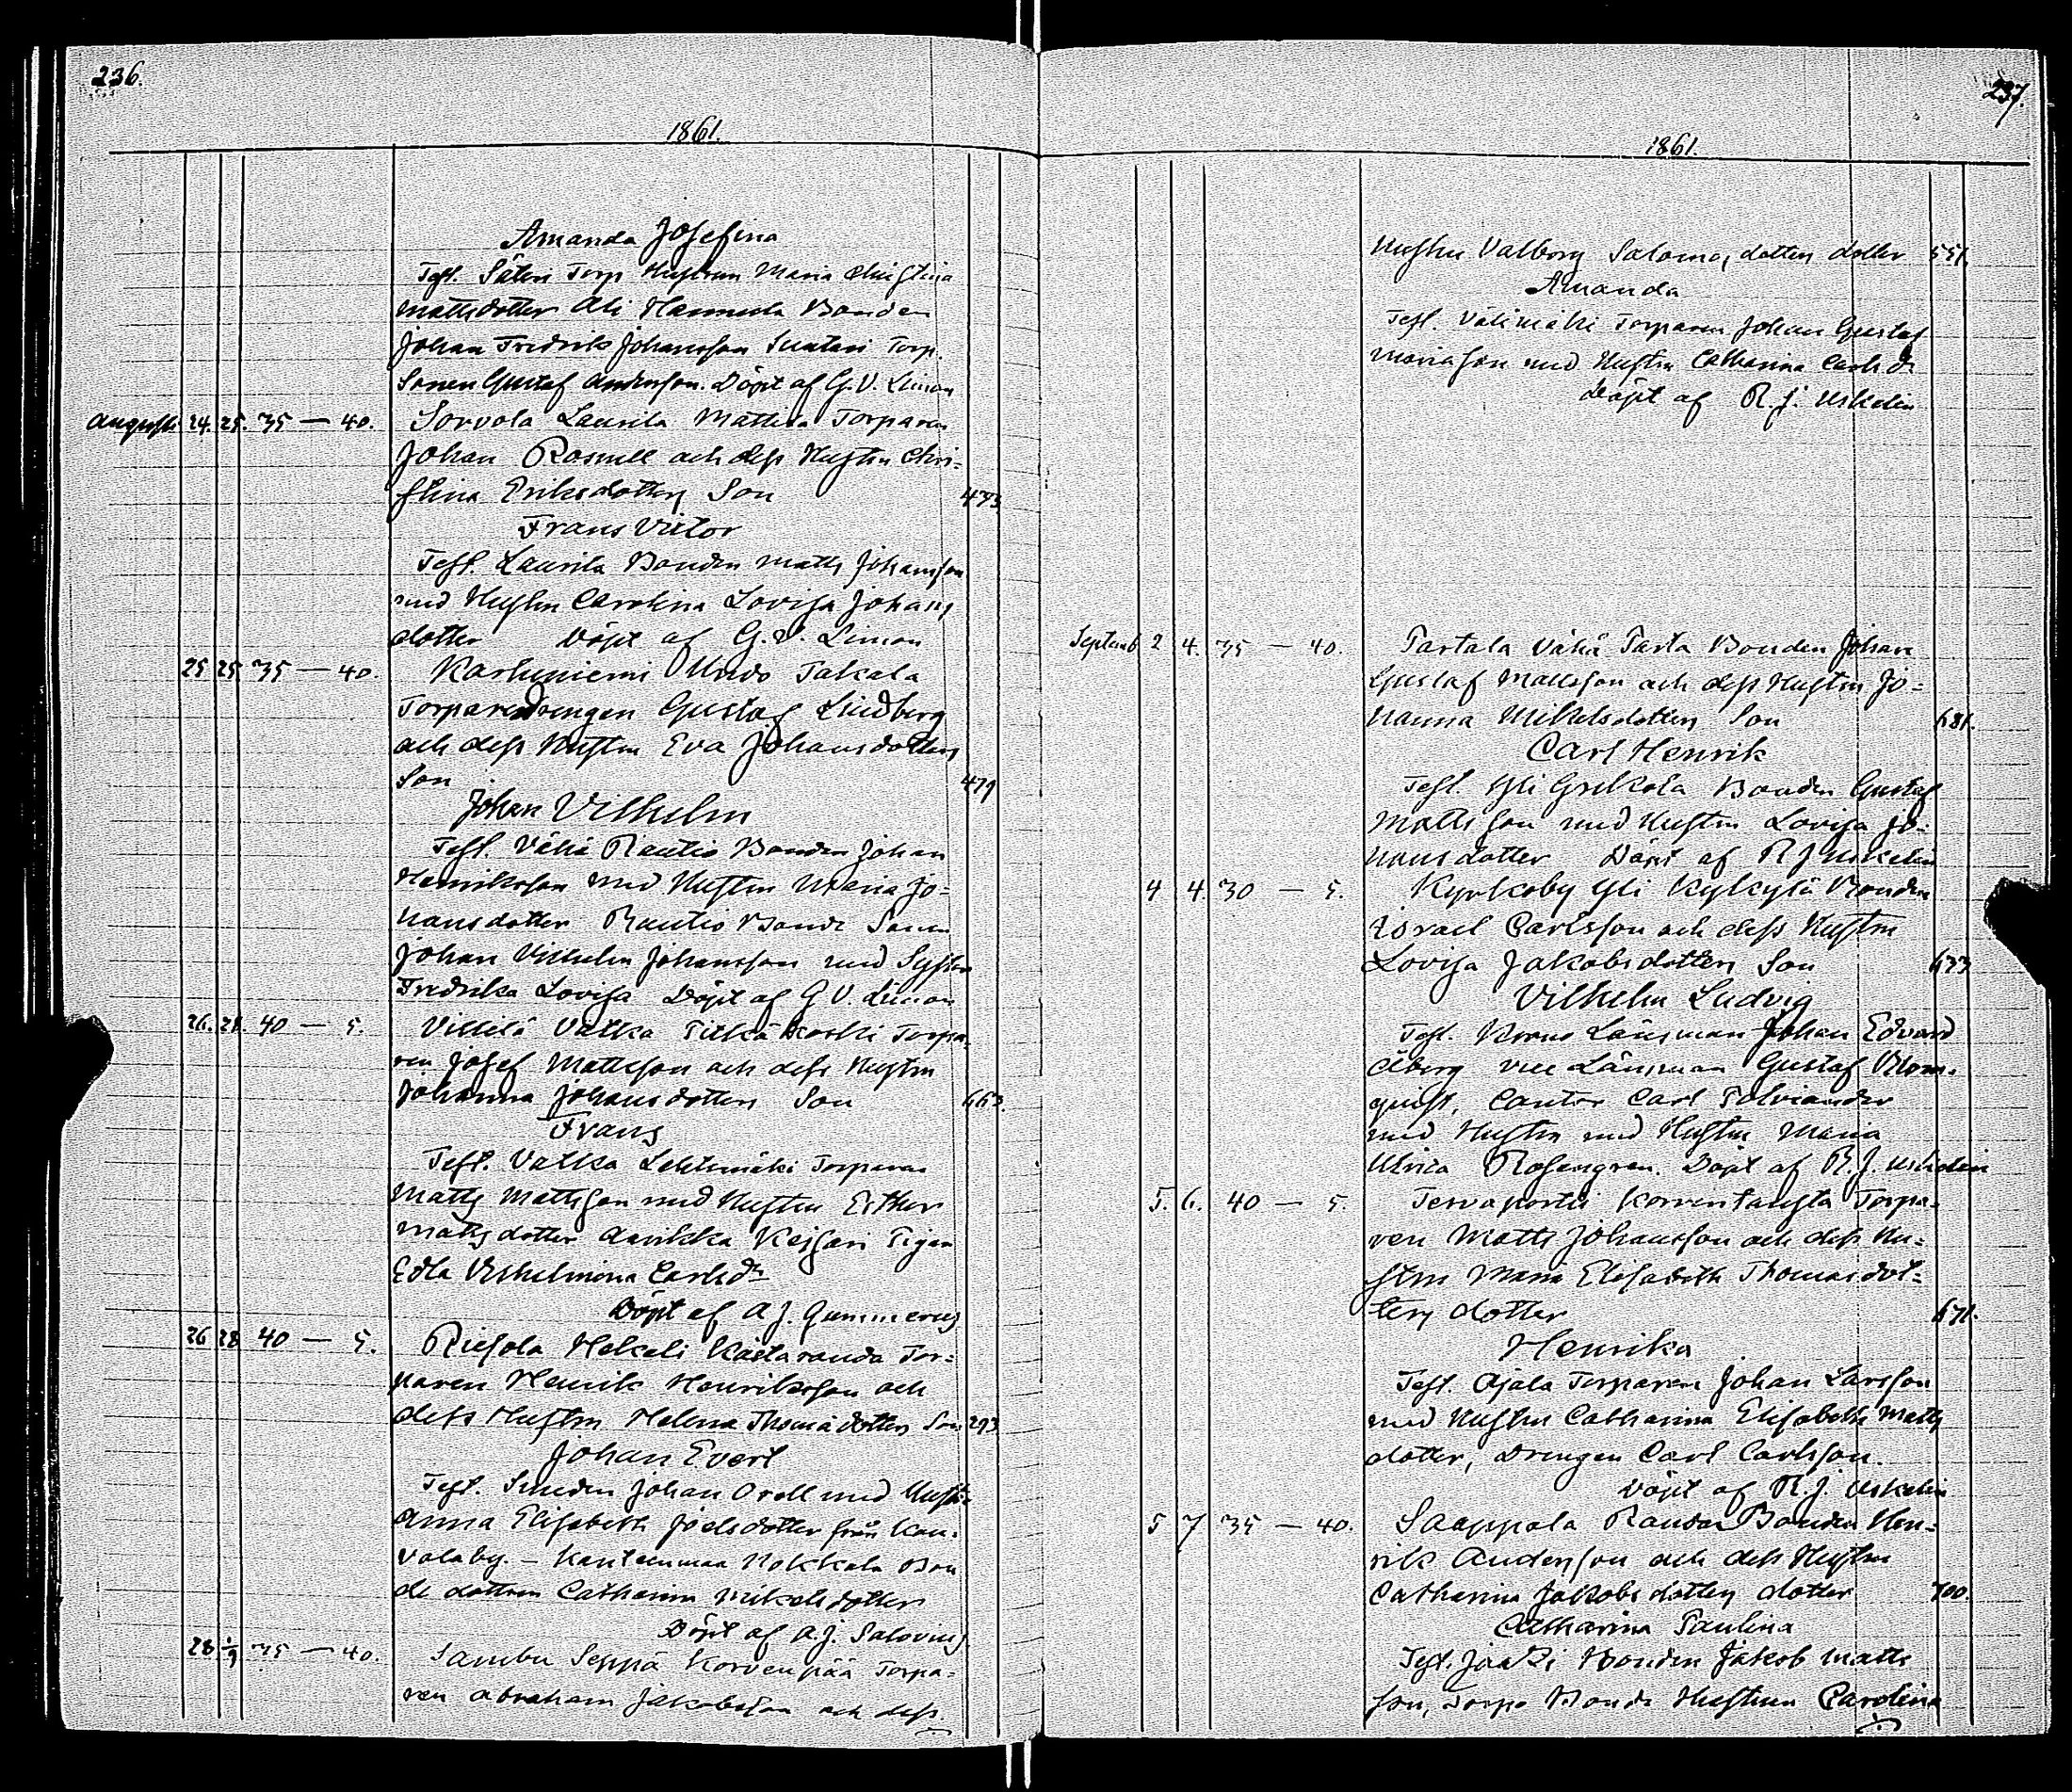 236.
1861.
Amanda Josefina
Test. Säteri Torp Hustrun Maria Christina
Mattsdotter Ali Hannula Bonden
Johan Fredrik Johansson Suutari Torp.
Sonen Gustaf Andersson. Döpt af G. V. Limon
Augusti 24. 25. 35 — 40. Sorvola Laurila Mattila Torparen
Johan Rosnell och dess Hustru Chri-
stina Eriksdotters Son 473
Frans Victor
Test. Laurila Bonden Matts Johansson
med Hustru Carolina Lovisa Johans
dotter Döpt af G. V. Limon
25 25 35 — 40. Karhiniemi Uudo Takala
Torparedrengen Gustaf Lindberg
och dess Hustru Eva Johansdotters
Son 479
Johan Vilhelm
Test. Vähä Rautio Bonden Johan
Henriksson med Hustru Maria Jo-
hansdotter Rautio Bonde Sonen
Johan Vilhelm Johansson med Syster
Fredrika Lovisa Döpt af G V. Limon
26. 28. 40 — 5. Villilä Vatka Pitkäkoski Torpa-
ren Josef Mattsson och dess Hustru
Johanna Johansdotters Son 663.
Frans
Test. Vatka Lehtimäki Torparen
Matts Mattsson med Hustru Esther
Mattsdotter Anikka Keisari Pigan
Edla Vilhelmina Carlsdr
Döpt af A J. Gummerus
26 28 40 — 5. Riesola Hekali Kästaranda Tor-
paren Henrik Henriksson och
dess Hustru Helena Thomædotters Son 293
Johan Evert
Test. Smeden Johan Orell med Hustru
Anna Elisabeth Joelsdotter från Kau-
valaby. — Kanteenmaa Nokkala Bon
de dottren Catharina Mikelsdotter
Döpt af A. J. Salovius
28 1/9 35 — 40. Sambu Seppä Korvenpää Torpa-
ren Abraham Jakobsson och dess
237.
1861.
Hustru Valborg Salomos dotters dotter 551.
Amanda
Test. Välimäki Torparen Johan Gustaf
Mariasson med Hustru Catharina Carlsdr
Döpt af R. J. Uskelin
Septemb 2 4. 35 — 40. Partala Vähä Parta Bonden Johan
Gustaf Mattsson och dess Hustru Jo-
hanna Mikelsdotters Son 681.
Carl Henrik
Test. Yli Grekola Bonden Gustaf
Mattsson med Hustru Lovisa Jo-
hansdotter Döpt af R J Uskelin
4 4. 30 — 5. Kyrkoby Yli Kylkylä Bonden
Israel Carlsson och dess Hustru
Lovisa Jakobsdotters Son 633
Vilhelm Ludvig
Test. Krono Länsman Johan Edvard
Åberg vice Länsman Gustaf Blom-
quist, Cantor Carl Palviander
med Hustru med Hustru Maria
Ulrica Rosengren. Döpt af R. J. Uskelin
5. 6. 40 — 5. Tervaportti Korventausta Torpa-
ren Matts Johansson och dess Hu-
stru Maria Elisabeth Thomasdot-
ters dotter 671.
Henrika
Test. Ojala Torparen Johan Larsson
med Hustru Catharina Elisabeth Matts
dotter, Drengen Carl Carlsson.
Döpt af R. J. Uskelin
5 7 35 — 40. Saappala Rauda Bonden Hen-
rik Andersson och dess Hustru
Catharina Jakobsdotters dotter 700.
Catharina Paulina
Test. Jaati Bonden Jakob Matts
son, Torpo Bonde Hustrun Carolina